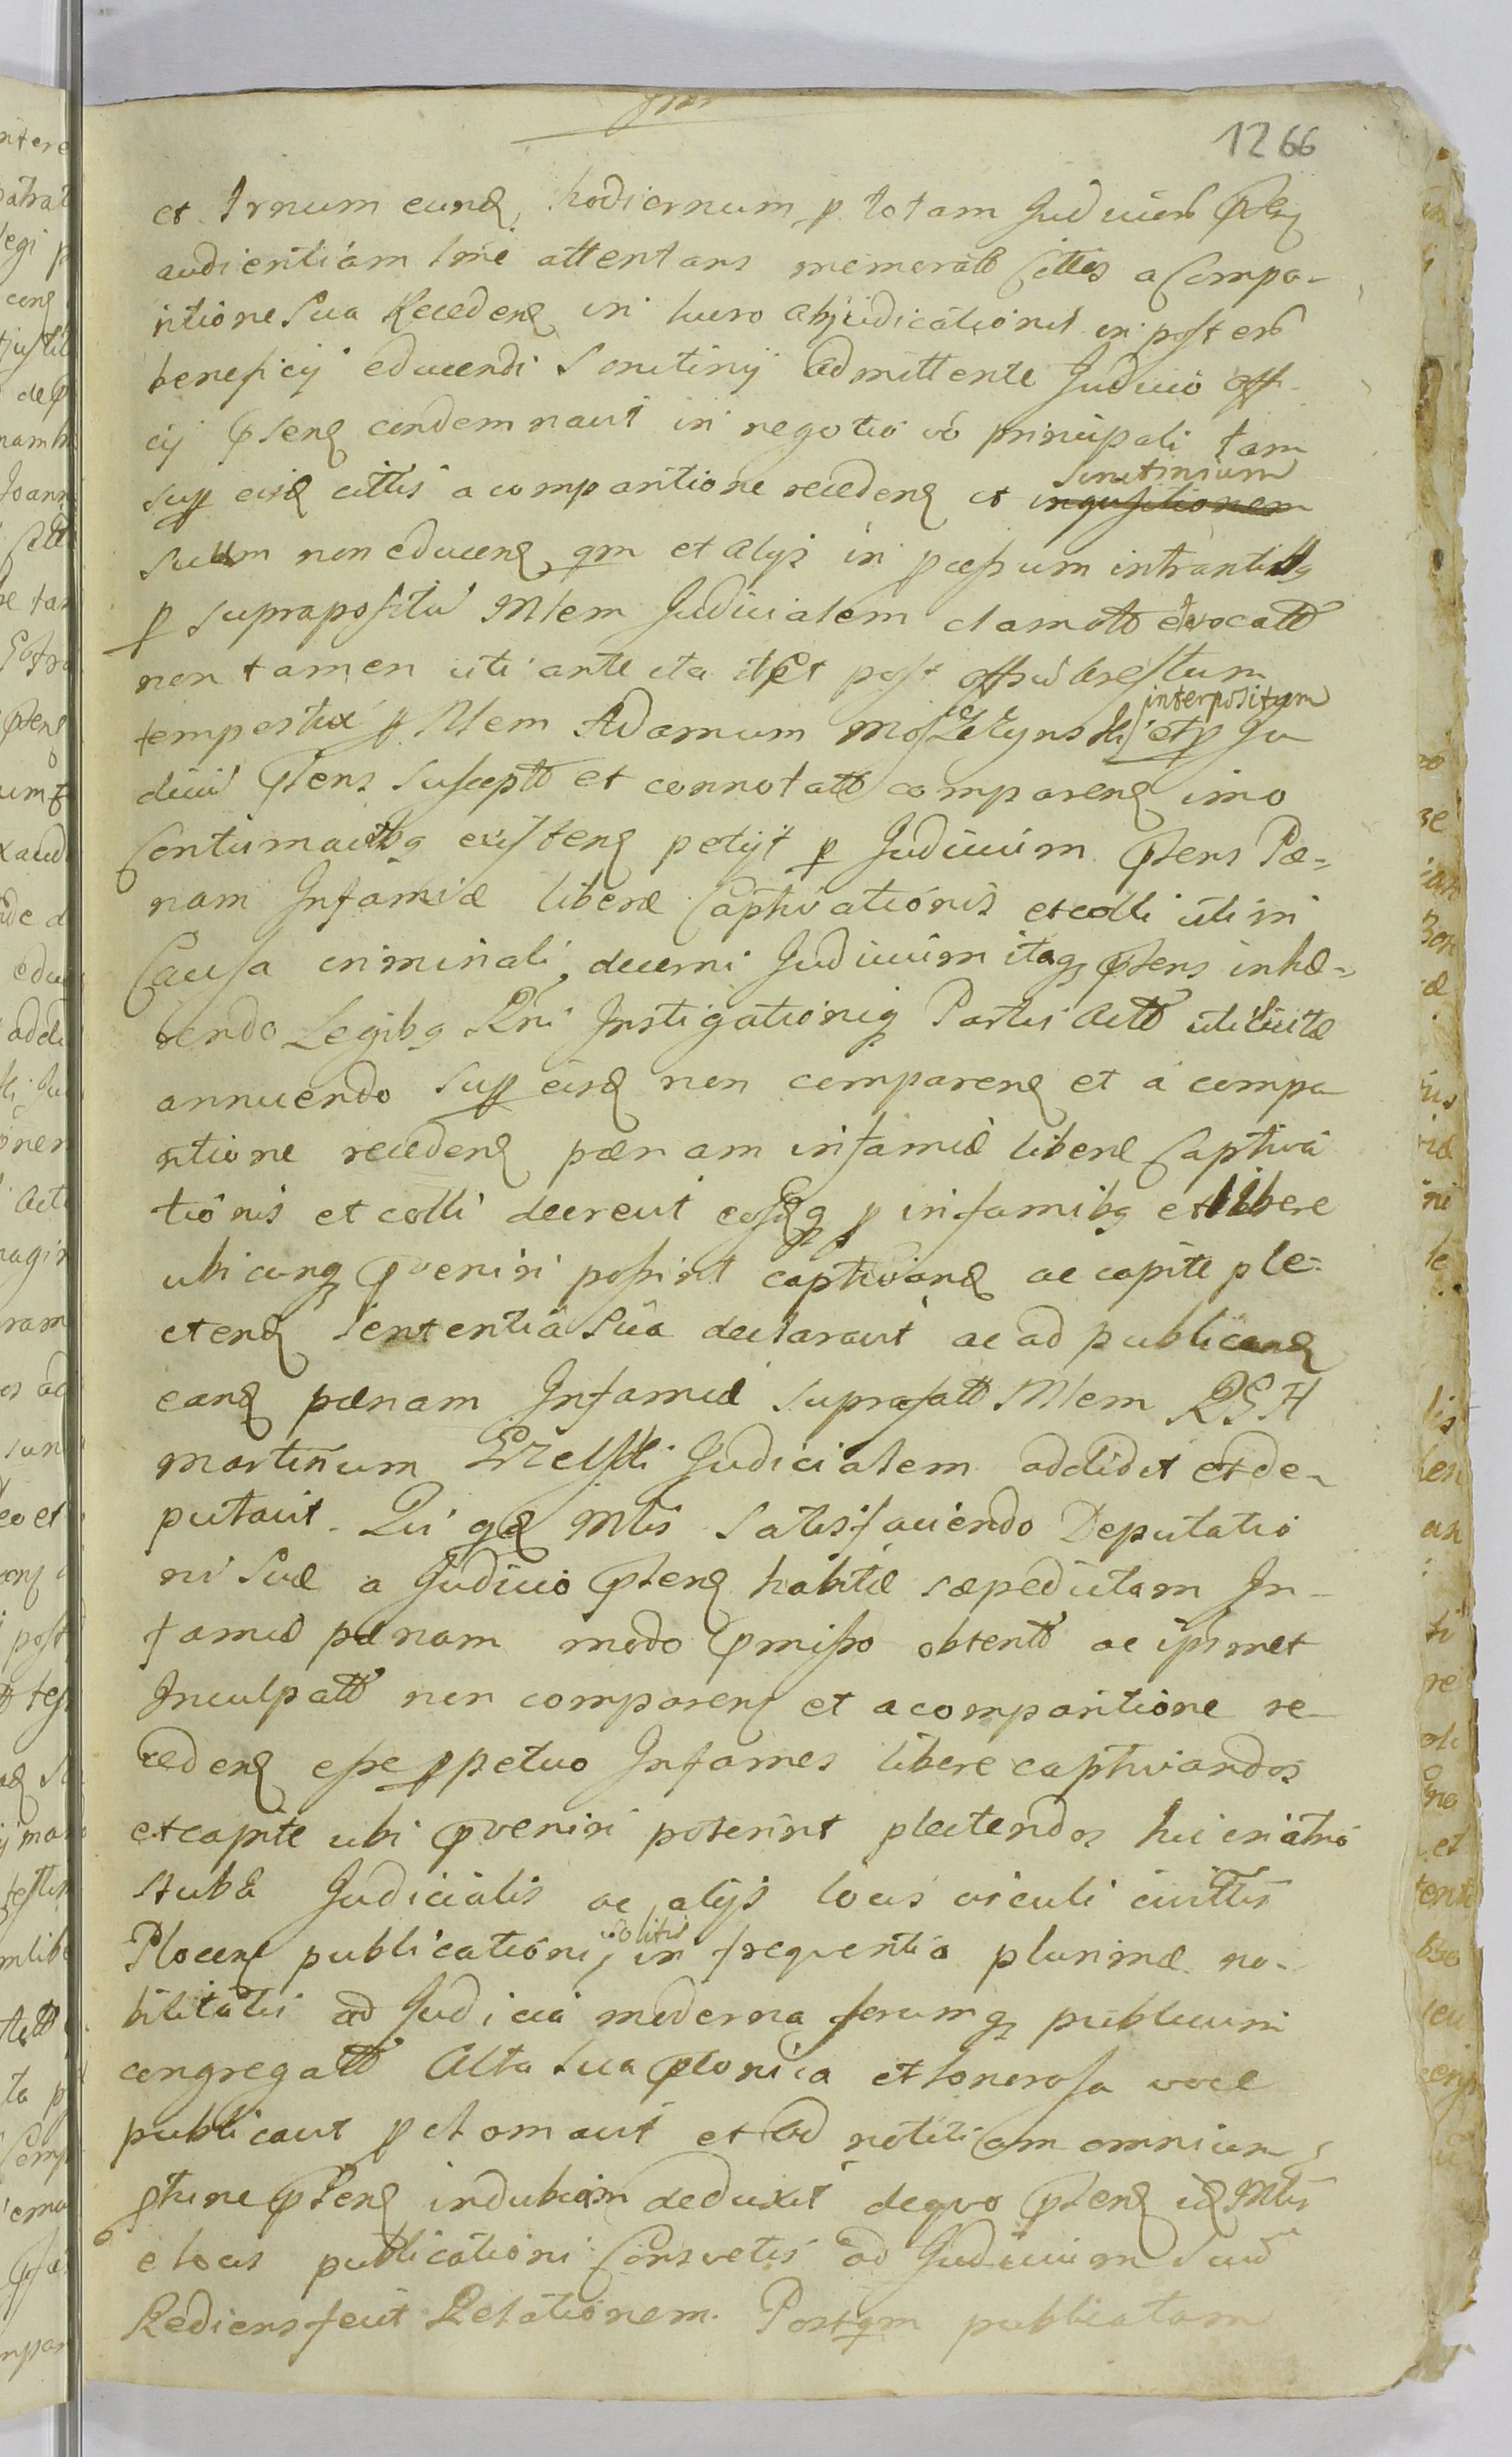 1266
et trnum eund, hodiernum p totam Judiciorũ pntiũ
audientiam trñe attentans memeratt Cittis a Compa-
ritione Sua Recedend in lucro abjudicationis in posterũ
beneficij educendi Scrutinij admittente Judicio offi
cij pntend condemnavit in negotio vó principali tam
supp eisd cittis a comparitione recedend et ~~inquisitionem~~ Scrutinium
suum non educend, qm et alijs in p cessum intrantibq
p supraposĩtũ Mlem Judicialem clamatt evocatt
non tamen uti ante ita et post offsũ Arestum
tempestivé p Mlem Adamum Moszczynski interpositum et p Ju
dicũ pntens susceptt et connotatt comparend imo
Contumacibq existend petijt p Judicium pntens Pæ-
nam Infamiæ liberæ Captivationis et colli uti in
Causa criminali, decerni Judicium itaq pntens inhæ-
rendo Legibq Rni Instigationiq Partis Actt uti licitæ
annuendo supp eisd non comparend et a compa
ritione recedend pænam infamiæ liberæ Captiva
tionis et colli decrevit eosdq p infamibq et libere
ubicunq pveniri possint captivand ac capite ple-
ctend Sententia Sua declaravit ac ad publicand
eand pænam Infamiæ suprafatt Mlem RGH
Martinum Erzelski Judicialem addidit et de-
putavit. Qui qd Mlis Satisfaciendo Deputatio
ni Suæ a Judicio pntend habitæ sæpedictam In-
famiæ pænam modo pmisso obtentt ac ipsmet
Inculpatt non comparend et a comparitione re-
cedend esse ppetuo Infames libere captivandos
et capite ubi pveniri poterint plectendos hic in atrio
stubæ Judicialis ac alijs locis circuli civittis
Plocen publicationi, solitis in frequentia plurimæ no-
bilitatis ad Judicia moderna forumq publicum
congregatt Alta sua ptonica et sonorosa voce
publicavit pclamavit et ad notitiam omnium
ptune pntend indubiam deduxit de quo pntend id Mlis
e locis publicationi Consvetis ad Judicium Suũ
Rediens fecit Relationem. Postqm publicatam